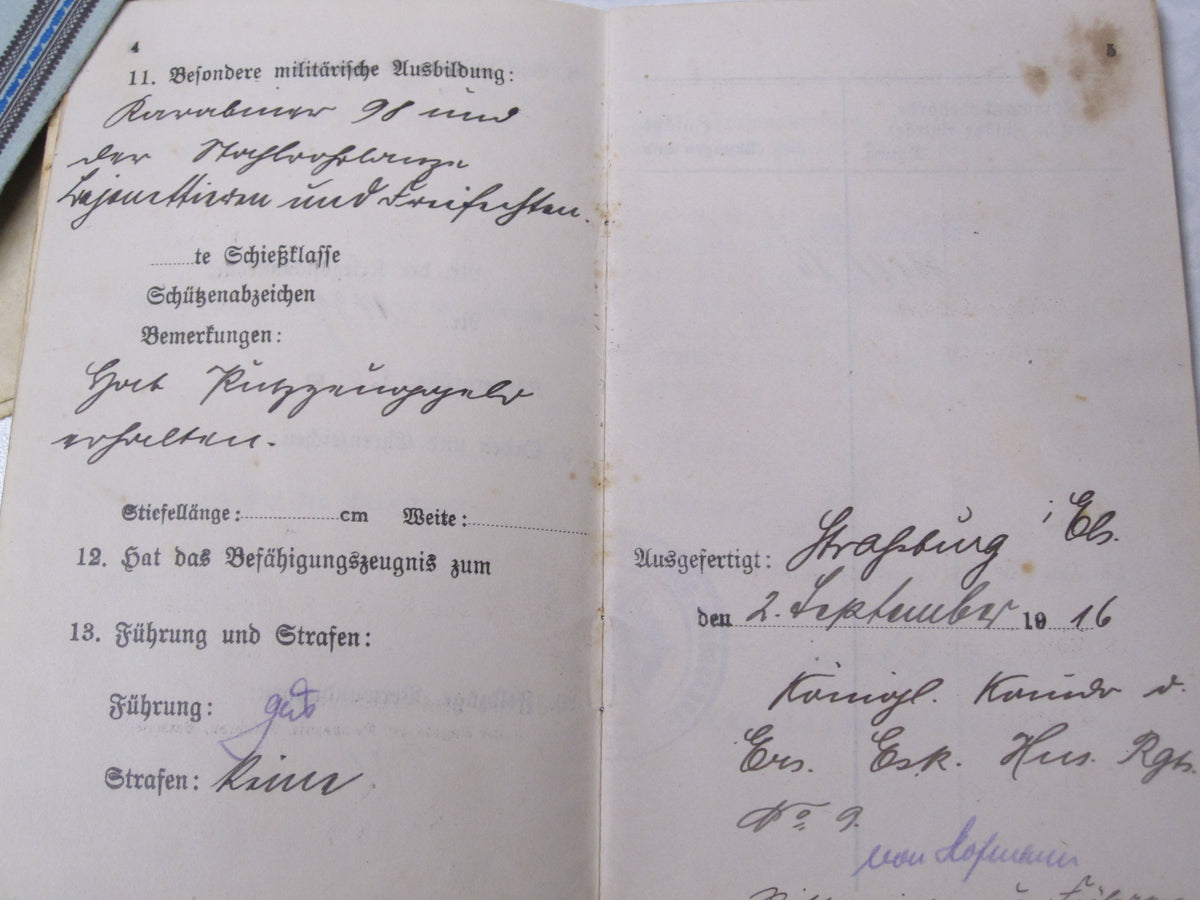 4
11. Besondere militärische Ausbildung:
Karabiner 98 und
der Stahlrohrlanze
Bajonettieren und Freifechten.
te Schießklasse
Schützenabzeichen
Bemerkungen:
Hat Putzzeuggeld
erhalten.
Stiefellänge: cm Weite:
12. Hat das Befähigungszeugnis zum
13. Führung und Strafen:
Führung: gut
Strafen: Keine
5
Ausgefertigt: Straßburg i Els.
den 2. September 1916
Königl. Komdo d.
Ers. Esk. Hus. Rgts.
No 9.
von Hofmann